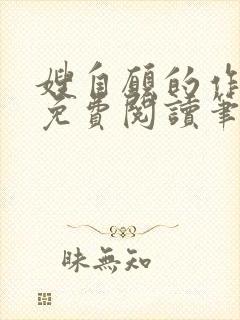 嫂自願的作
免費閱讀筆
昧無知